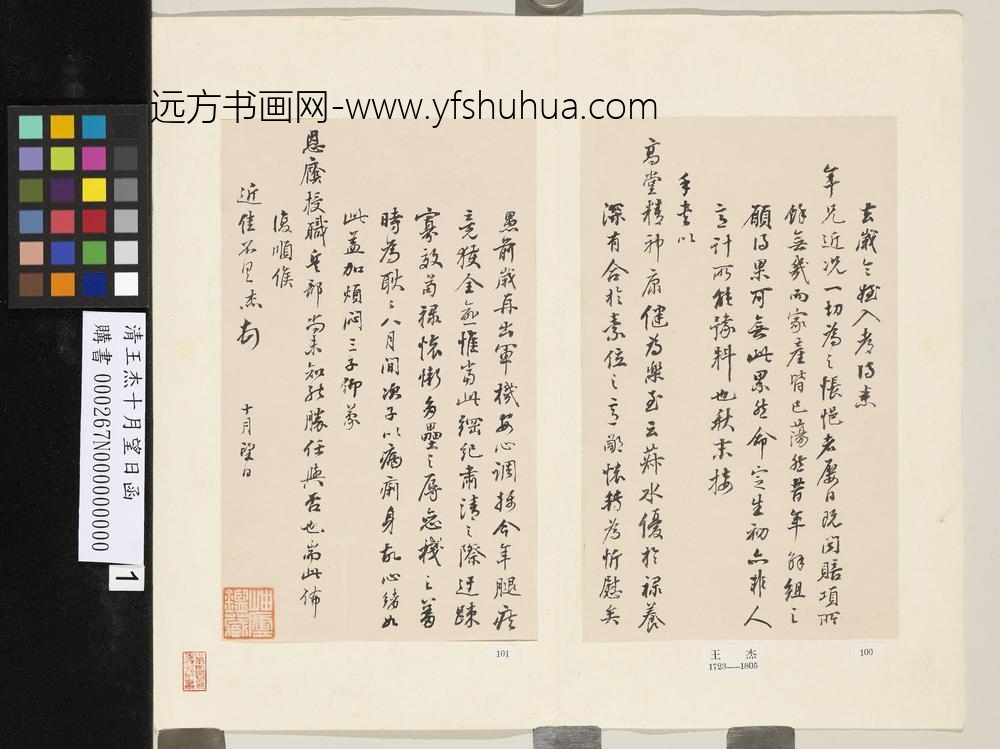 远方书画网-www.yfshuhua.com
去歲令姪入都得悉
年兄近况一切為之悵悒者屡日既聞賠項所
餘無幾而家產皆已蕩然昔年解組之
願得果可無此累然命定生初亦非人
意計所能豫料也秋末接
手書以
高堂精神康健為樂至云菽水優於禄養
深有合於素位之言鄙懷轉為忻慰矣
愚前歲再出軍機安心調攝今年腿疾
竟獲全愈惟當此綱紀肅清之際迂疎
寡效苟禄懷慚多壘之辱
時為耿耿八月間次子以病痢身故心緒如
此益加煩悶三子仰蒙
恩廕授職兵部尚未知能勝任與否也耑此佈
復順候
近佳不具杰
十月望日
清王杰十月望日函
購書 000267N000000000
1
王杰
1723—1805
100
101